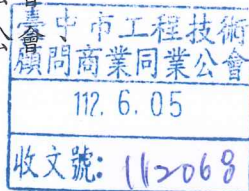 會
臺中市工程技術
顧問商業同業公會
112.6.05
收文號:112068